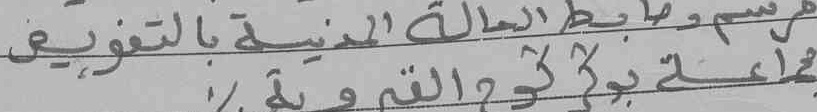 مرسم وضابط الحالة المدنية بالتفويض
جماعة بو القروية /.